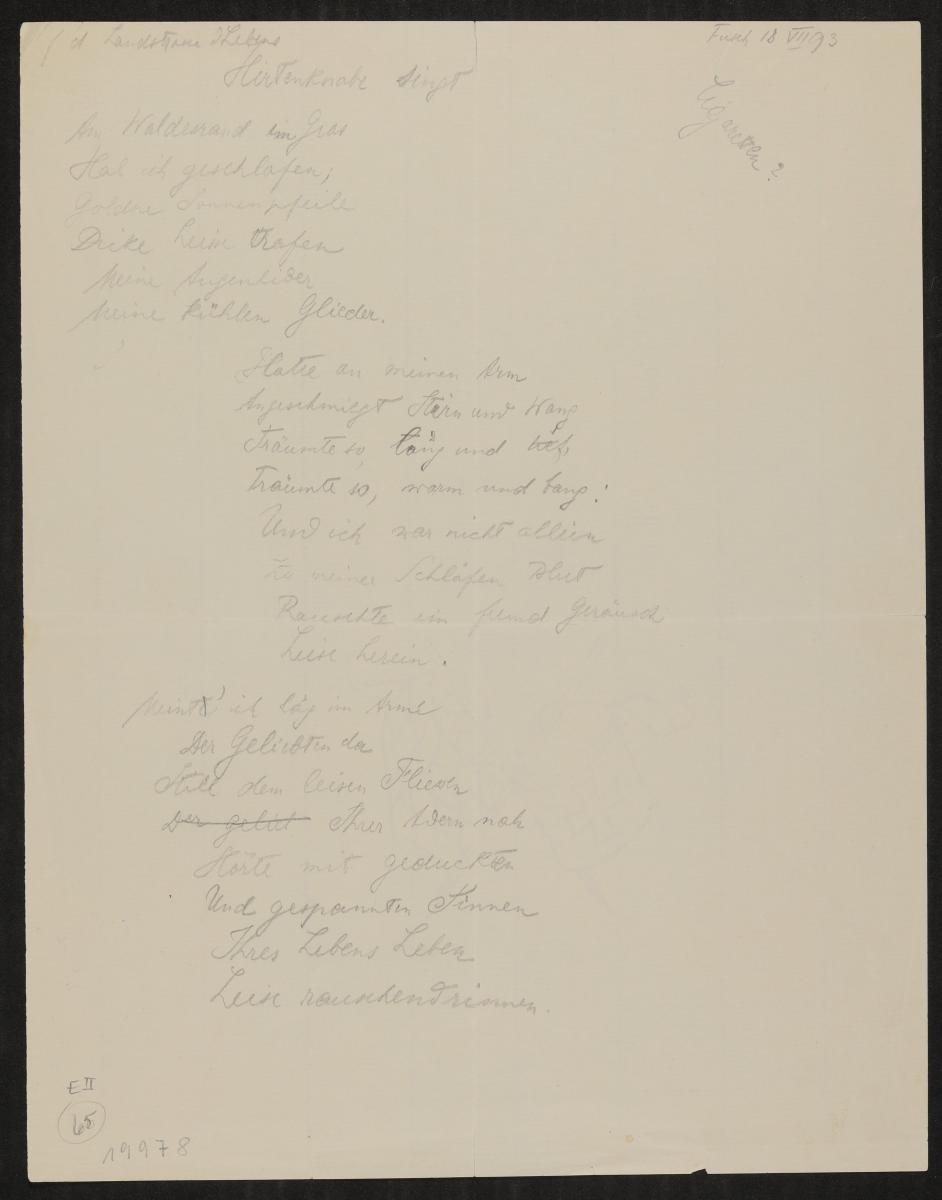 f d Landstrasse d Lebens
Fusch 18 VII 93
Hirtenknabe singt
Cigaretten?
Am Waldesrand im Gras
Hab ich geschlafen;
Goldne Sonnenpfeile
Dicke heisse trafen
Meine Augenlider
Meine kühlen Glieder.
Hatte an meinen Arm
Angeschmiegt Stirn und Wang
Träumte so, lang und tief,
Träumte so, warm und bang:
Und ich war nicht allein
Zu meiner Schläfen Blut
Rauschte ein fremd Geräusch
Leise herein.
Meint' ich läg im Arme
Der Geliebten da
Still dem leisen Fliessen
Der gelieb Ihrer Adern nah
Hörte mit geduckten
Und gespannten Sinnen
Ihres Lebens Leben
Leise rauschend rinnen.
E II
65
19978